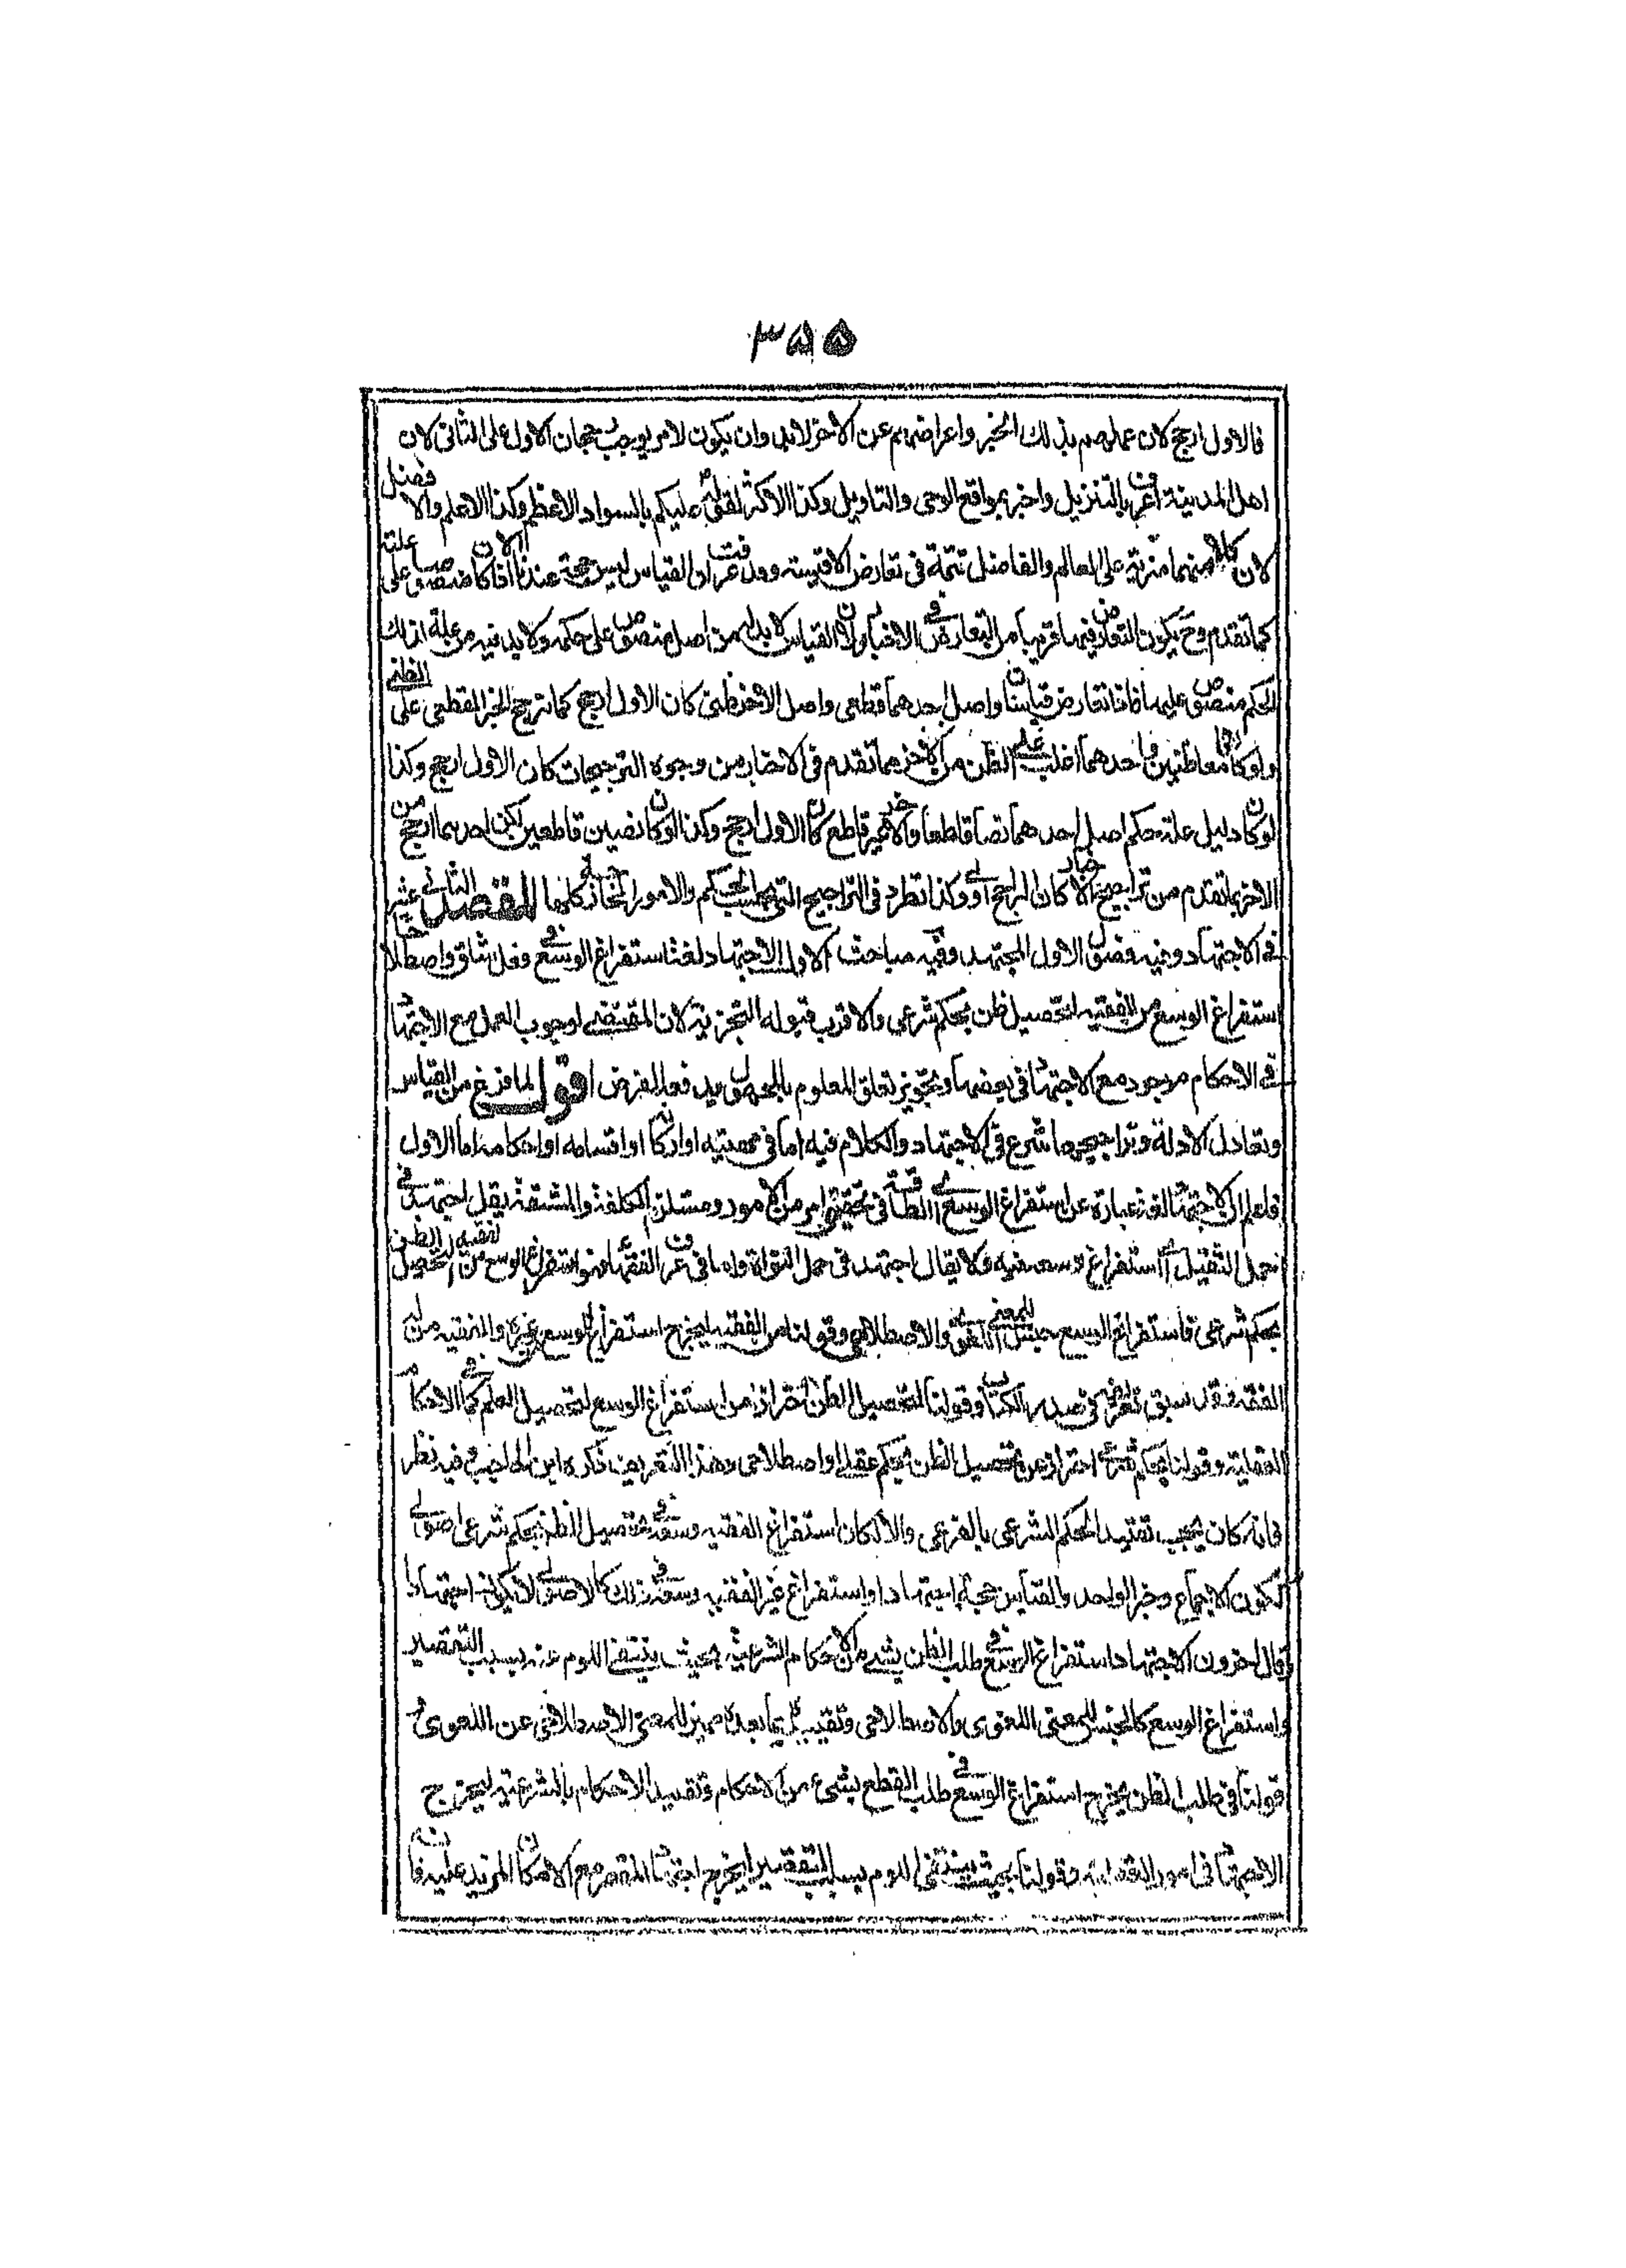 ٣٥٥
فالاول ارجح لان عملهم بذلك الخبر واعراضهم عن الاخر لابد وان يكون لامر يوجب رجحان الاول على الثانى لان
اهل المدينة اعرف بالتنزيل واخبر بمواقع الوحى والتاويل وكذا الاكثر لقوله عليكم بالسواد الاعظم وكذا الاعلم والافضل
لان كلا منهما مزية على العالم والفاضل تتمة فى تعارض الاقيسة وقد عرفت ان القياس ليس حجة عندنا الا اذا كان منصوصا على علته
كما تقدم وح يكون التعارض فيها قريبا من التعارض فى الاخبار ولان القياس لابد له من اصل منصوص على حكمه ولابد فيه من علة لذلك
الحكم منصوص عليها فاذا تعارض قياسان واصل احدهما قطعى واصل الاخر ظنى كان الاول ارجح كما ترجح الخبر القطعى على الظنى
ولو كانا معا ظنيين واحدهما اغلب على الظن من الاخر بما تقدم فى الاخبار من وجوه الترجيحات كان الاول ارجح وكذا
لو كان دليل علة حكم اصل احدهما نصا قاطعا والاخر غير قاطع كان الاول ارجح وكذا لو كانا نصين قاطعين لكن احدهما ارجح من
الاخر بما تقدم من تراجيح الاخبار كان الراجح اولى وكذا تطرد فى التراجيح التى بحسب الحكم والامور الخارجة كلها المقصد الثانى عشر
فى الاجتهاد وفيه فصول الاول المجتهد وفيه مباحث الاول الاجتهاد لغة استفراغ الوسع فى فعل شاق واصطلاحا
استفراغ الوسع من الفقيه لتحصيل ظن بحكم شرعى والاقرب قبوله التجزية لان المقتضى لوجوب العمل مع الاجتهاد
فى الاحكام موجود مع الاجتهاد فى بعضها وتجويز تعلق المعلوم بالمجهول يدفعه الفرض اقول لما فرغ من القياس
وتعادل الادلة وتراجيحها شرع فى الاجتهاد والكلام فيه اما فى مهيته او اركانه او اقسامه او احكامه اما الاول
فاعلم ان الاجتهاد لغة عبارة عن استفراغ الوسع اى الطاقة فى تحقيق امر من الامور ومستلزم الكلفة والمشقة يقال اجتهد فى
حمل الثقيل اى استفراغ وسعه فيه ولا يقال اجتهد فى حمل النواة واما فى عرف الفقهاء فهو استفراغ الوسع من الفقيه لتحصيل الظن
بحكم شرعى فاستفراغ الوسع جنس للمعنى اللغوى والاصطلاحى وقولنا من الفقيه ليخرج استفراغ الوسع من غيره والفقيه من
الفقه فقد سبق تعريفه فى صدر الكتاب وقولنا لتحصيل الظن احتراز من استفراغ الوسع لتحصيل العلم كما فى الاحكام
العقلية وقولنا بحكم شرعى احتراز عن تحصيل الظن بحكم عقلى او اصطلاحى وهذا التعريف ذكره ابن الحاجب وفيه نظر
فانه كان يجب تقييد الحكم الشرعى بالفرعى والا لكان استفراغ الفقيه وسعه فى تحصيل الظن بحكم شرعى اصولى
لكون الاجماع وخبر الواحد والقياس حجة اجتهادا واستفراغ غير الفقيه وسعه فى ذلك كالاصولى لا يكون اجتهادا
وقال اخرون الاجتهاد استفراغ الوسع فى طلب الظن بشىء من الاحكام الشرعية بحيث ينتفى اللوم عنه بسبب التقصير
واستفراغ الوسع كالجنس للمعنى اللغوى والاصطلاحى وتقييده بما بعده مميز للمعنى الاصطلاحى عن اللغوى
قولنا فى طلب الظن يخرج استفراغ الوسع فى طلب القطع بشىء من الاحكام وتقييد الاحكام بالشرعية ليخرج
الاجتهاد فى امور العقلية وقولنا بحيث ينتفى اللوم بسبب التقصير ليخرج اجتهاد المقصر مع الامكان المزيد عليه فان